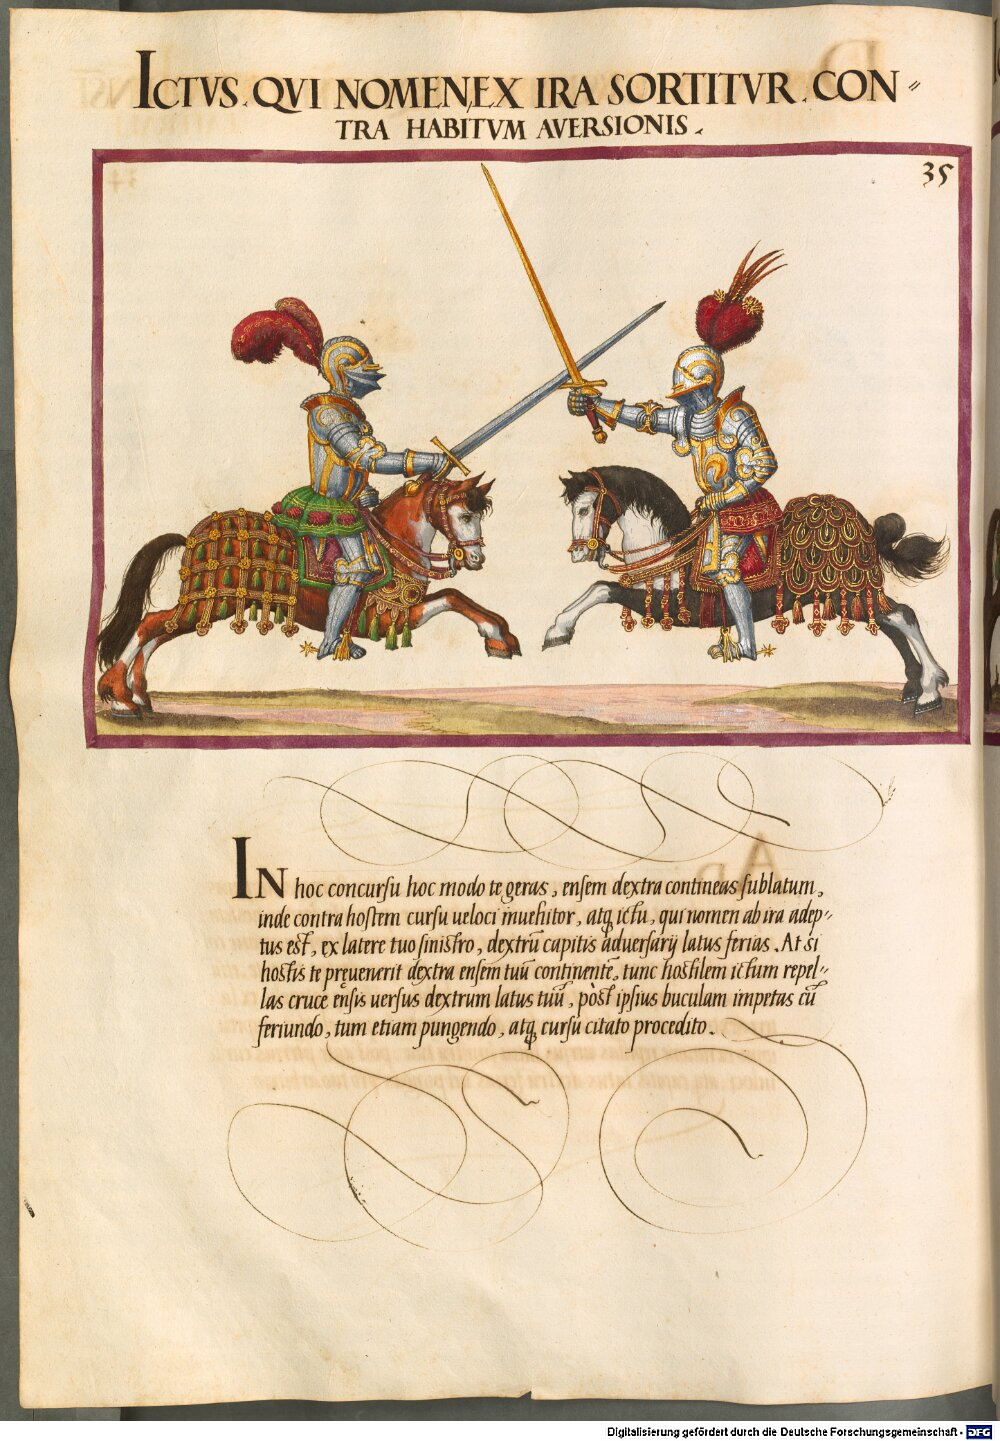 ICTVS. QVI NOMEN, EX IRA SORTITVR. CON〃
TRA HABITVM AVERSIONIS.
35
IN hoc concursu hoc modo te geras, ensem dextra contineas sublatum,
inde contra hostem cursu ueloci inuehitor, atq̨ ictu, qui nomen ab ira adep〃
tus est, ex latere tuo sinistro, dextrū capitis aduersarij latus ferias. At si
hostis te pręuenerit dextra ensem tuū continentē, tunc hostilem ictum repel〃
las cruce ensis uersus dextrum latus tuū, pòst ipsius buculam impetas cū
feriundo, tum etiam pungendo, atq̨ cursu citato procedito.
Digitalisierung gefördert durch die Deutsche Forschungsgemeinschaft - DFG